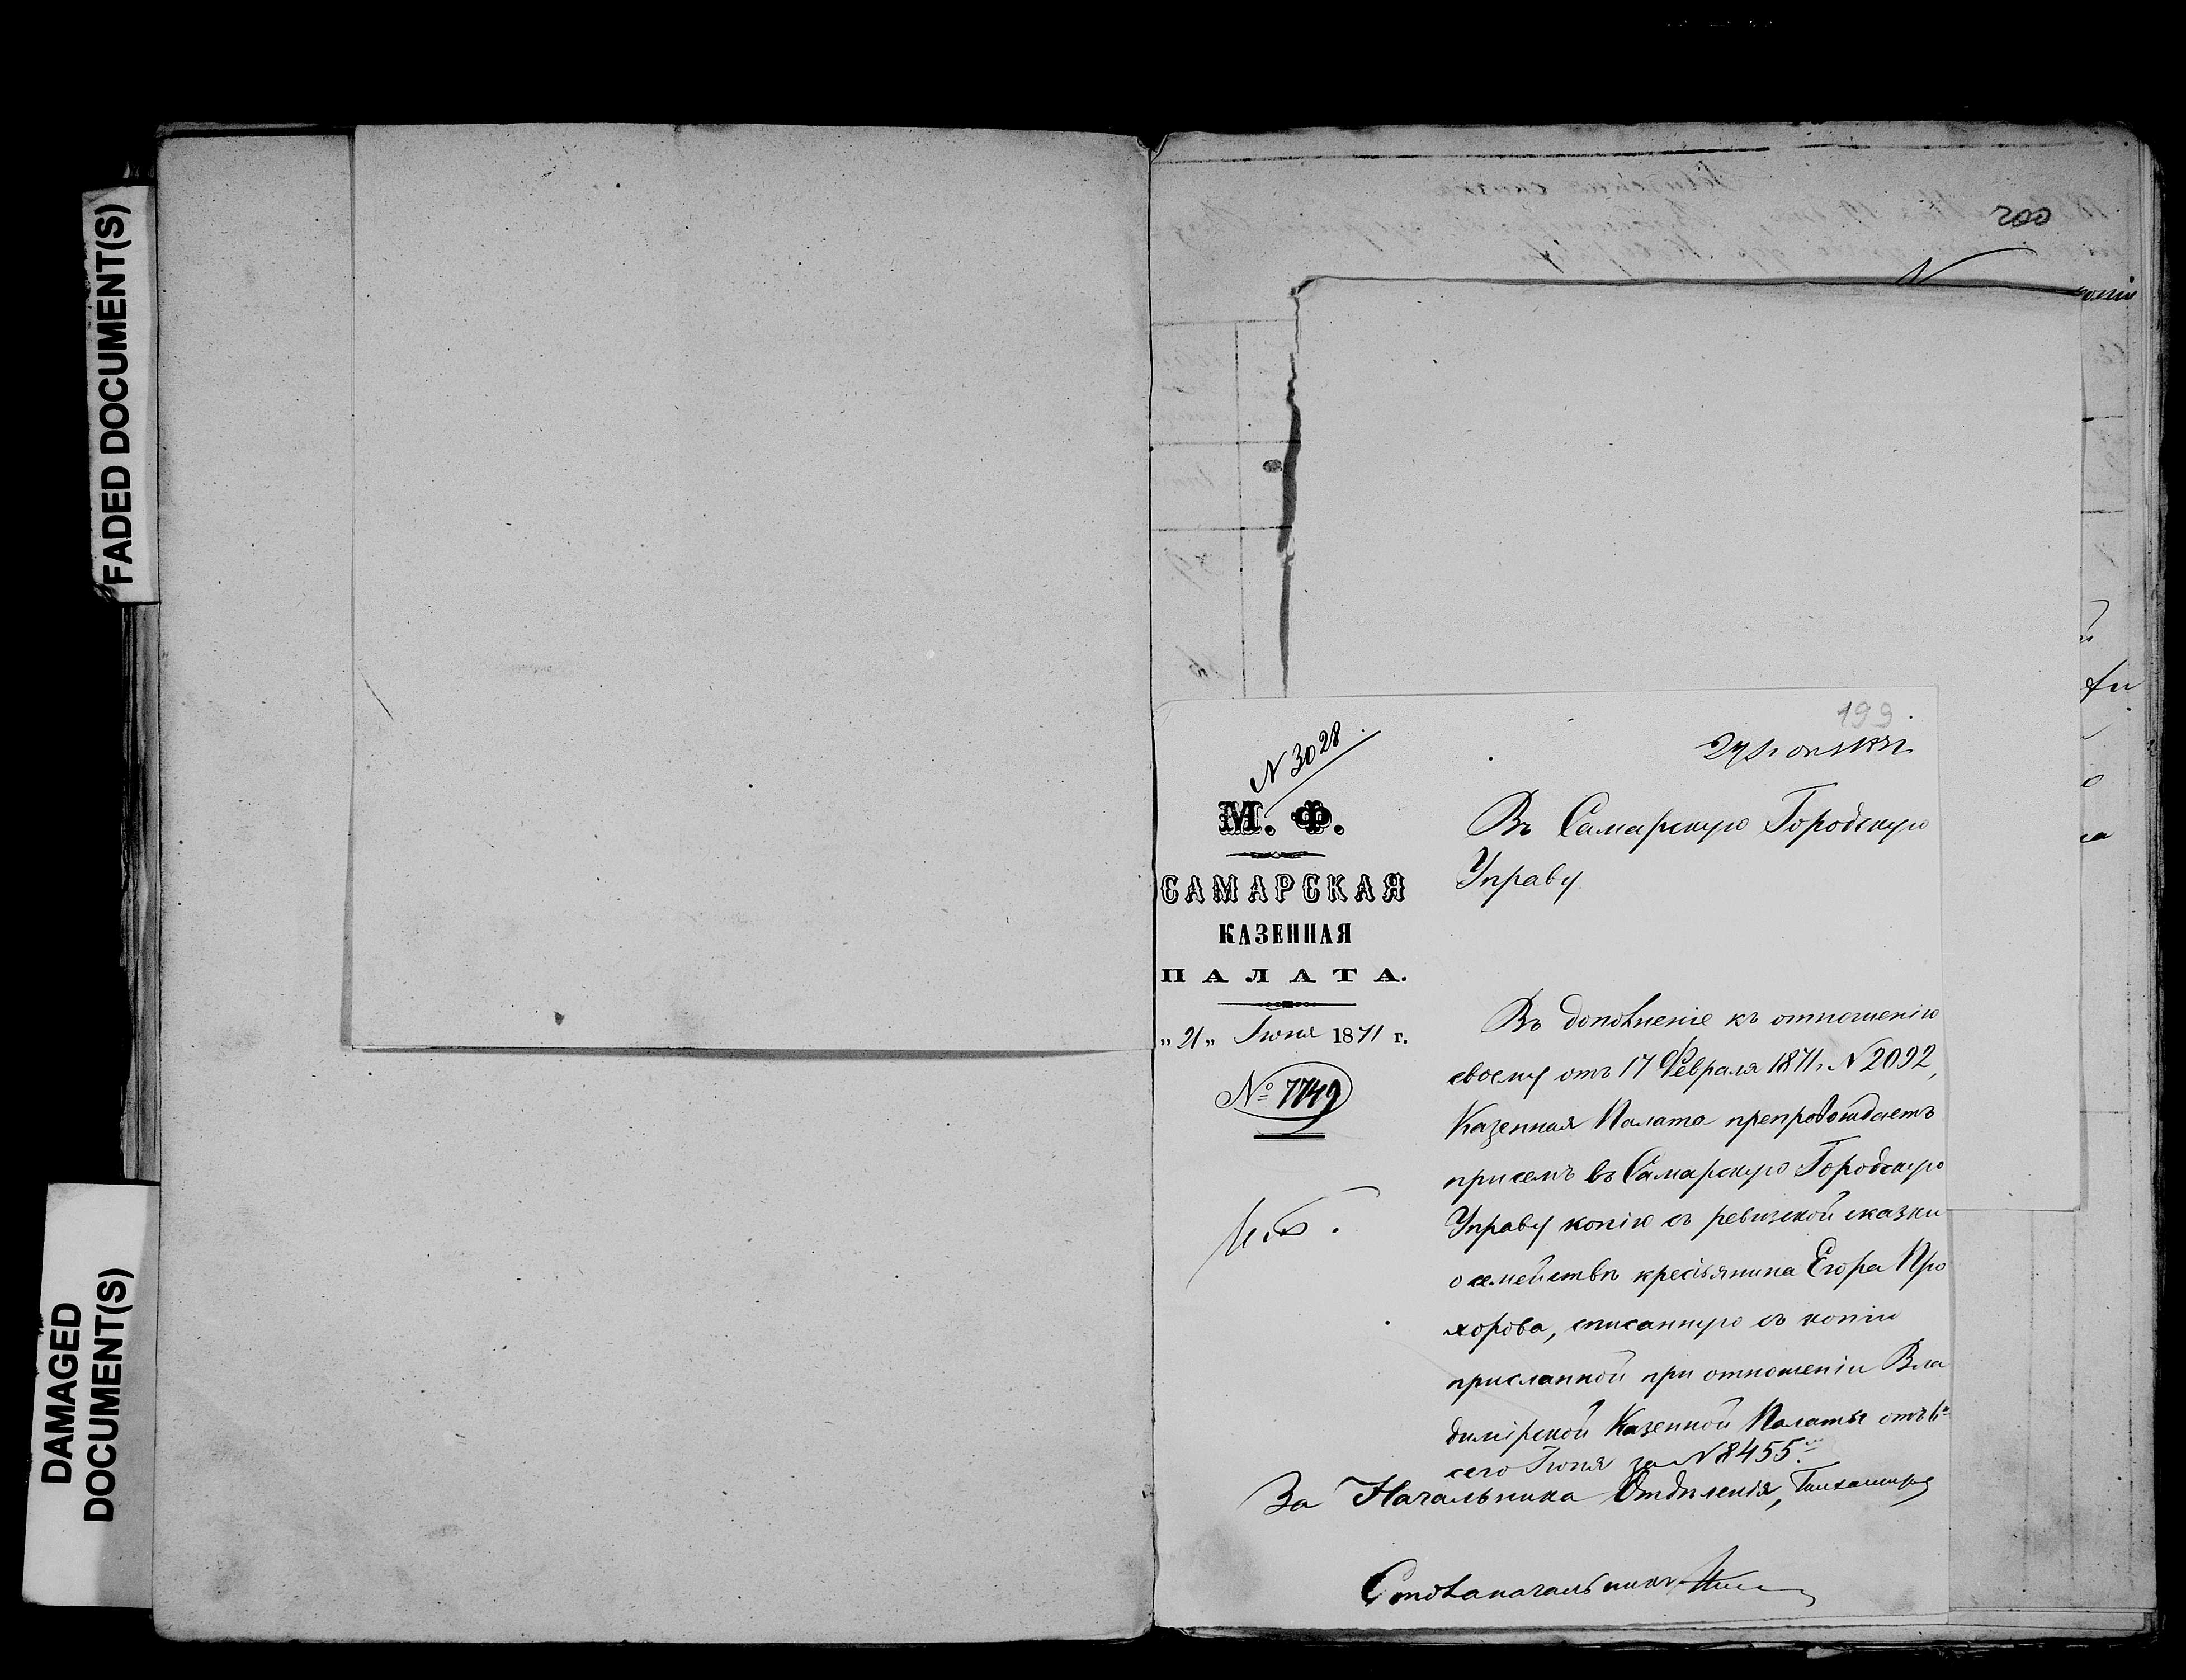 FADED DOCUMENT(S)
DAMAGED
DOCUMENT(S)
200
N
199
N 3028
М. Ф.
САМАРСКАЯ
КАЗЕННАЯ
ПАЛАТА.
„21„ Іюня 1871 г.
№ 7749
Въ Самарскую Городскую
Управу
Въ дополненіе къ отношенію
своему отъ 17 Февраля 1871 г. N 2092,
Казенная Палата препровождаетъ
при семъ въ Самарскую Городскую
Управу копію съ ревизской сказки
о семействѣ крестьянина Егора Про
хорова, списанную съ копіи
присланной при отношеніи Вла
димірской Казенной Палаты отъ
сего Іюня за N 8455.
За Начальника Отдѣленія,
Столоначальникъ